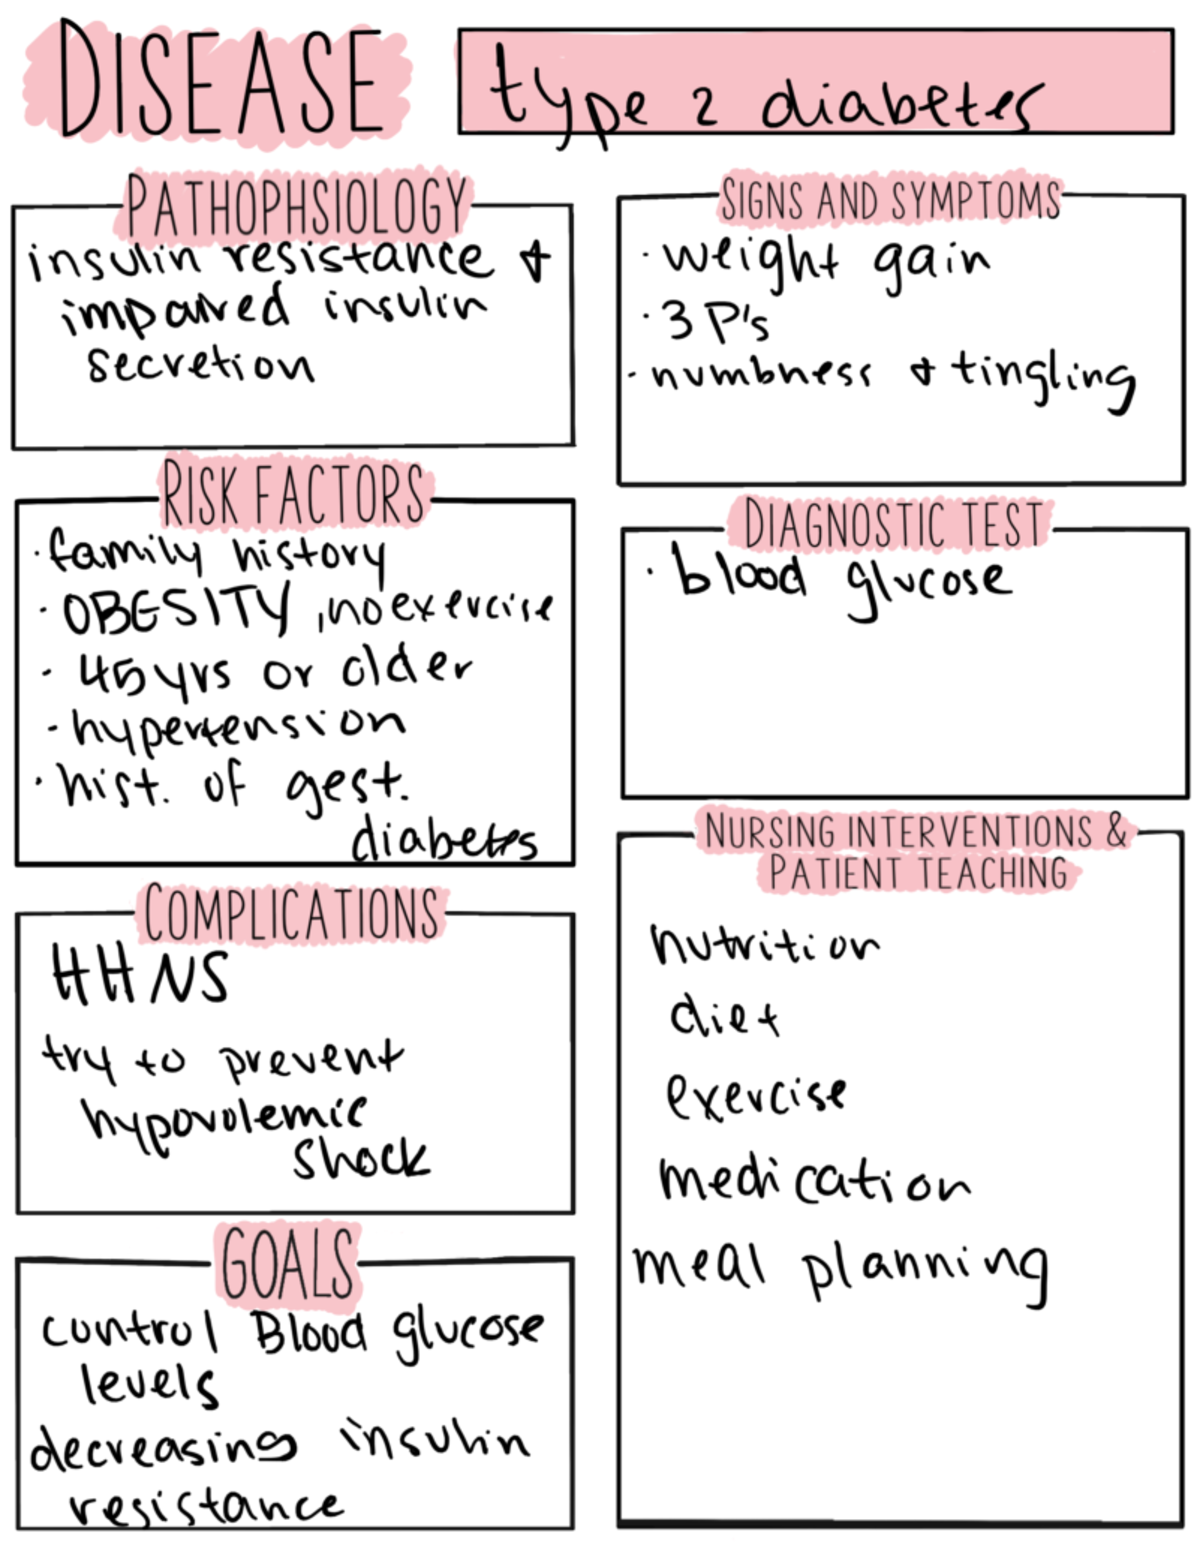 DISEASE
type 2 diabetes
PATHOPHSIOLOGY
insulin resistance &
impaired insulin
secretion
RISK FACTORS
· family history
· OBESITY, no exercise
· 45 yrs or older
· hypertension
· hist. of gest.
diabetes
COMPLICATIONS
HHNS
try to prevent
hypovolemic
shock
GOALS
control Blood glucose
levels
decreasing insulin
resistance
SIGNS AND SYMPTOMS
· weight gain
· 3 P's
· numbness & tingling
DIAGNOSTIC TEST
· blood glucose
NURSING INTERVENTIONS &
PATIENT TEACHING
nutrition
diet
exercise
medication
meal planning